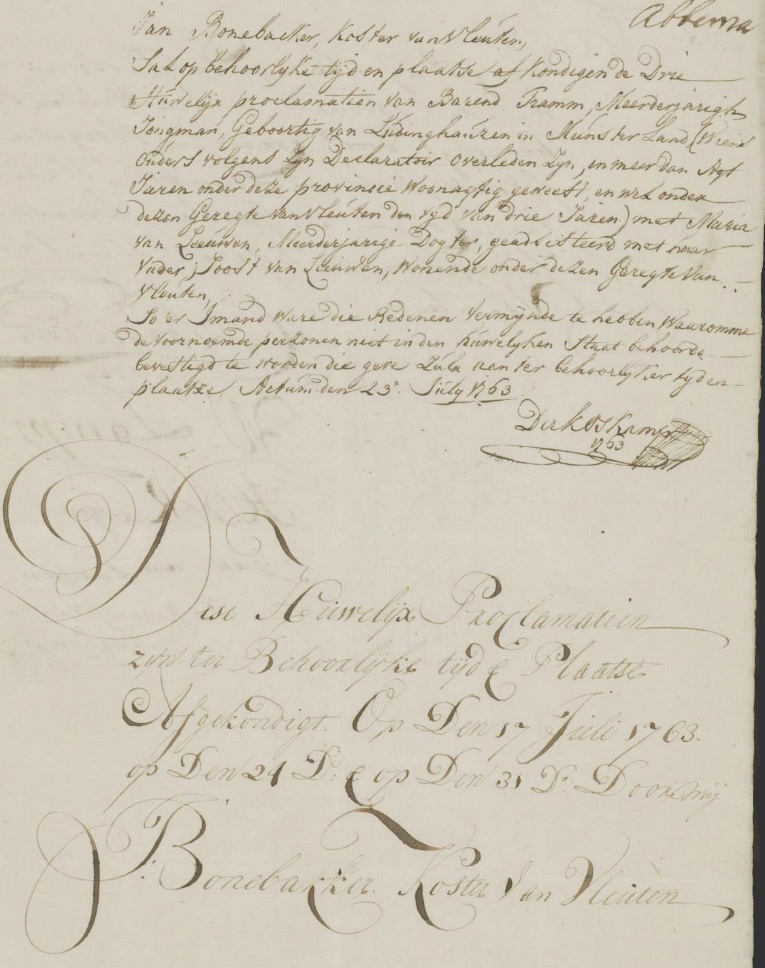 Abbema
Jan Bonebacker, Koster van Vleuten,
Sal op behoorlyke tyd en plaatse af kondigen de Drie
Huwelijx proclamatien van Barend Tramm, Meerderjarigh
Jongman, Geboortig van Ludinghauzen in Munsterland (Wiens
Ouders volgens Zyn Declaratoir overleden Zyn, en meer dan Agt
Jaren onder deze provincie Woonagtig geweest, en wel onder
dezen Geregte van Vleuten den tyd van drie Jaren) met Maria
van Leeuwen, Meerderjarige Dogter, geadsisteerd met haar
Vader, Joost van Leeuwen, Wonende onder dezen Geregte van
Vleuten,
So er Imand ware die Redenen Vermynde te hebben Waaromme
de voornoemde perzonen niet in den huwelyken Staat behoorde
bevestigd te worden die geve Zulx aan ter behoorlyker tyd en
plaatze, Actum den 23e. July 1763
Dirk Oskamp
1763
Dese Huwelijx Proclamatien
zyn ter Behoorlijke tijd & Plaatse
Afgekondigt. Op Den 17 Juli 1763.
op Den 24 Do: & op Den 31 Do. Door Mij
J: Bonebakker. Koster Van Vleuten